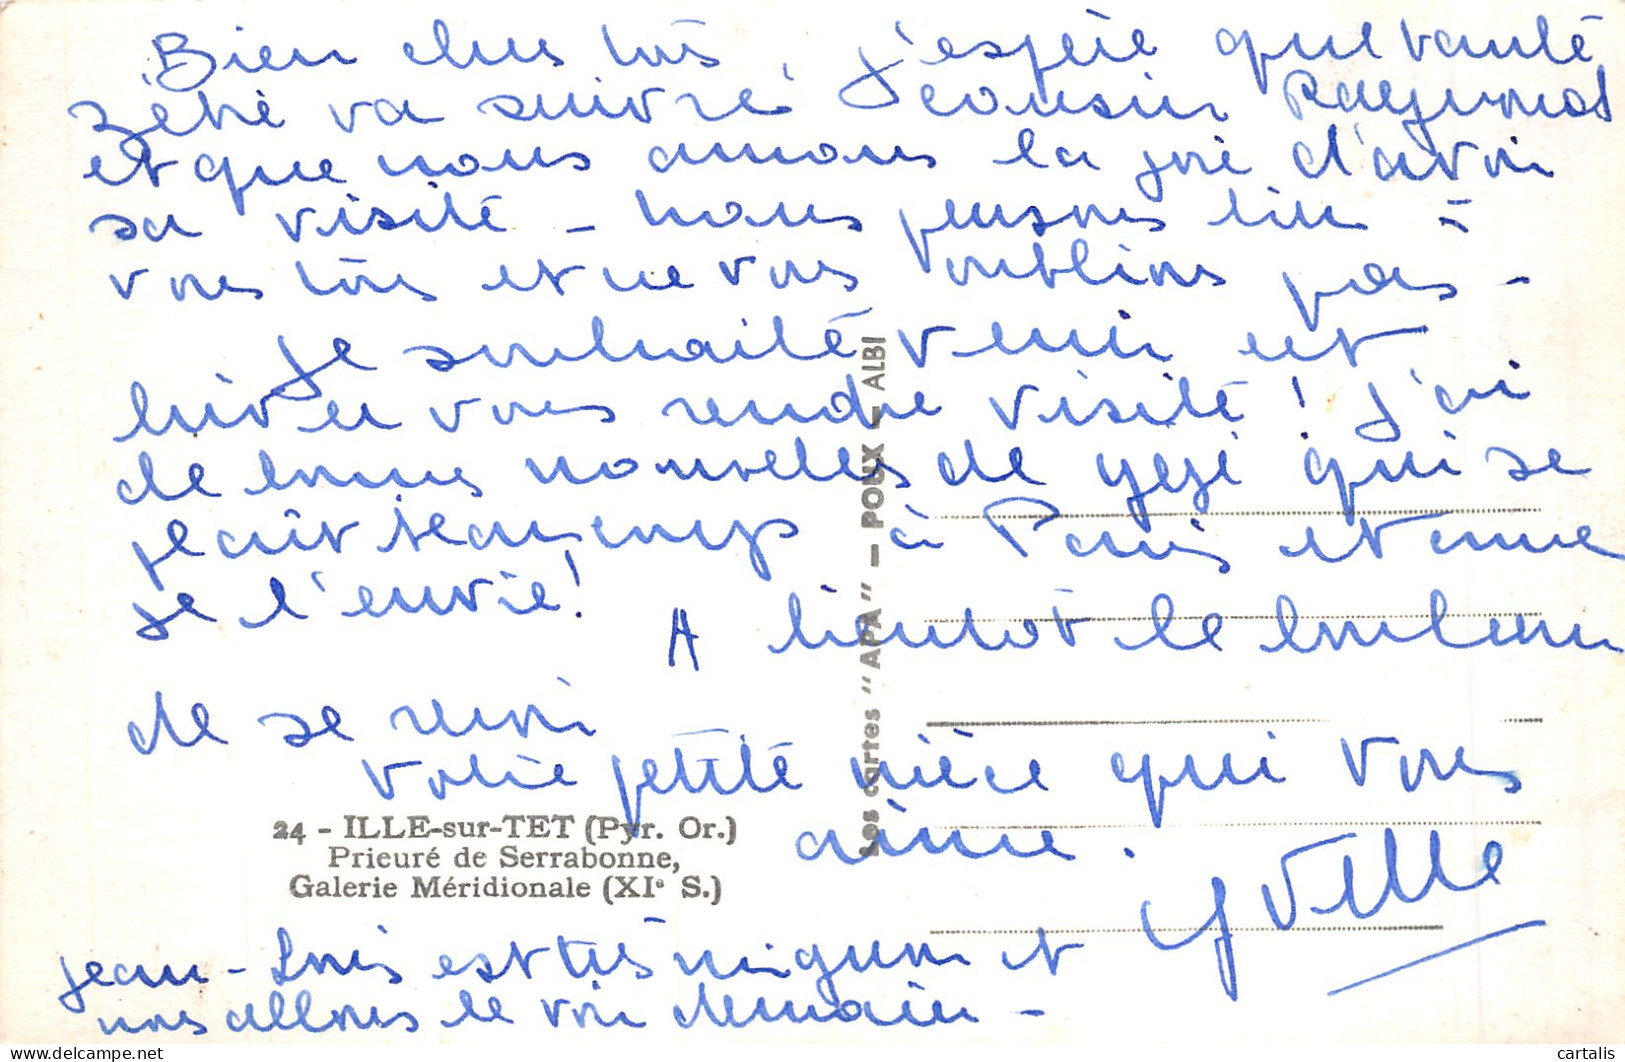 Bien chers tous, j'espère que tante
Zézie va suivre cousin Raymond
et que nous aurons la joie d'avoir
sa visite - nous pensons bien à
vous tous et ne vous oublions pas -
Je souhaite venir cet
hiver vous rendre visite ! J'ai
de bonnes nouvelles de Gégé qui se
plait beaucoup à Paris et comme
je l'envie !
A bientôt le bonheur
de se revoir
votre petite nièce qui vous
aime.
Yvette
24 - ILLE-sur-TET (Pyr. Or.)
Prieuré de Serrabonne,
Galerie Méridionale (XIe S.)
Les cartes "APA" - POUX - ALBI
Jean-Louis est très mignon et
nous allons le voir demain -
cartalis